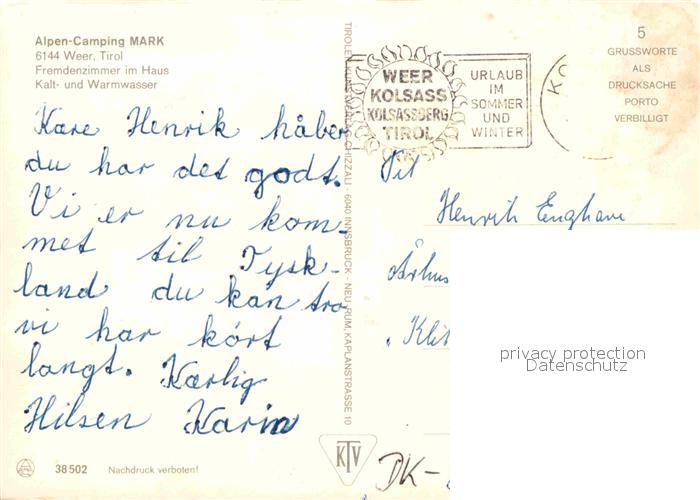 Alpen-Camping MARK
6144 Weer, Tirol
Fremdenzimmer im Haus
Kalt- und Warmwasser
Kære Henrik håber
du har det godt.
Vi er nu kom-
met til Tysk-
land du kan tro
vi har kört
langt. Kærlig
Hilsen Karin
38502 Nachdruck verboten!
6040 INNSBRUCK · NEU-RUM, KAPLANSTRASSE 10
KTV
WEER
KOLSASS
KOLSASSBERG
TIROL
URLAUB
IM
SOMMER
UND
WINTER
5
GRUSSWORTE
ALS
DRUCKSACHE
PORTO
VERBILLIGT
Til
Henrik Enghave
Århus
DK-
privacy protection
Datenschutz